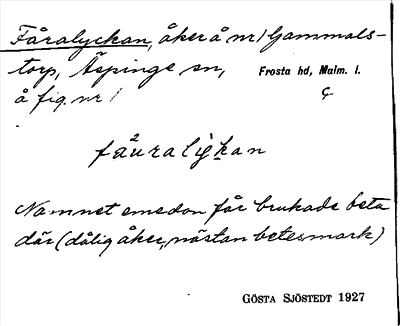 Fåralyckan, åker å nr 1 Gammals-
torp, Äspinge sn, Frosta hd, Malm. l.
å fig. nr 1 Ç
2
fåuralykan
Namnet emedan får brukade beta
där (dålig åker, nästan betesmark)
GÖSTA SJÖSTEDT 1927